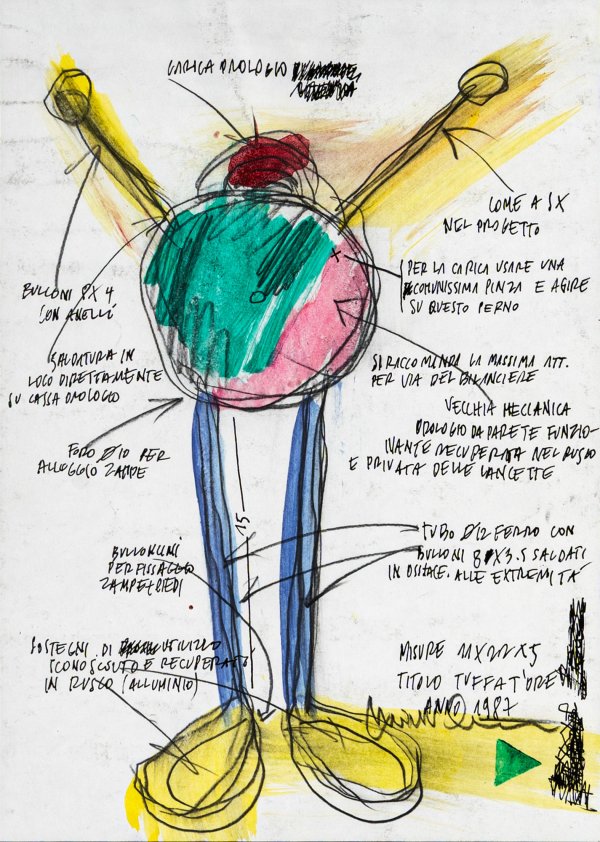 CARICA OROLOGIO
COME A SX
NEL PROGETTO
PER LA CARICA USARE UNA
COMUNISSIMA PINZA E AGIRE
SU QUESTO PERNO
BULLONI 8X4
CON ANELLI
SALDATURA IN
LOCO DIRETTAMENTE
SU CASSA OROLOGIO
SI RACCOMANDA LA MASSIMA ATT.
PER VIA DEL BILANCIERE
VECCHIA MECCANICA
OROLOGIO DA PARETE FUNZIO-
NANTE RECUPERATA NEL RUSCO
E PRIVATA DELLE LANCETTE
FORO Ø10 PER
ALLOGGIO ZAMPE
15
TUBO Ø12 FERRO CON
BULLONI 8X3.5 SALDATI
IN ALLE ESTREMITÀ
BULLONCINI
PER FISSAGGIO
ZAMPE+PIEDI
SOSTEGNI DI UTILIZZO
SCONOSCIUTO E RECUPERATO
IN RUSCO (ALLUMINIO)
MISURE 11X22X5
TITOLO TUFFAT'ORE
ANNO 1987